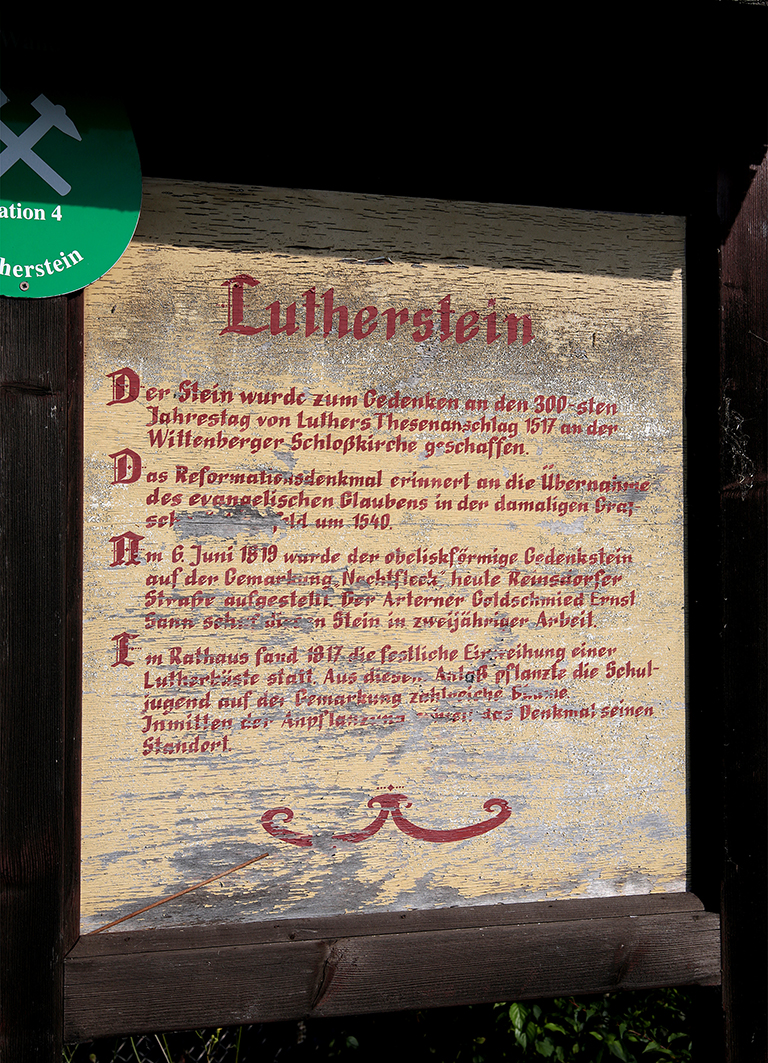 ation 4
herstein
Lutherstein
Der Stein wurde zum Gedenken an den 300-sten
Jahrestag von Luthers Thesenanschlag 1517 an der
Wittenberger Schloßkirche geschaffen.
Das Reformationsdenkmal erinnert an die Übernahme
des evangelischen Glaubens in der damaligen Graf
sch feld um 1540.
Am 6. Juni 1819 wurde der obeliskförmige Gedenkstein
auf der Gemarkung "Nachtfleck", heute Reinsdorfer
Straße aufgestellt. Der Arterner Goldschmied Ernst
Sann schuf diesen Stein in zweijähriger Arbeit.
Im Rathaus fand 1817 die festliche Einweihung einer
Lutherbüste statt. Aus diesem Anlaß pflanzte die Schul-
jugend auf der Gemarkung zahlreiche Bäume.
Inmitten der Anpflanzung das Denkmal seinen
Standort.